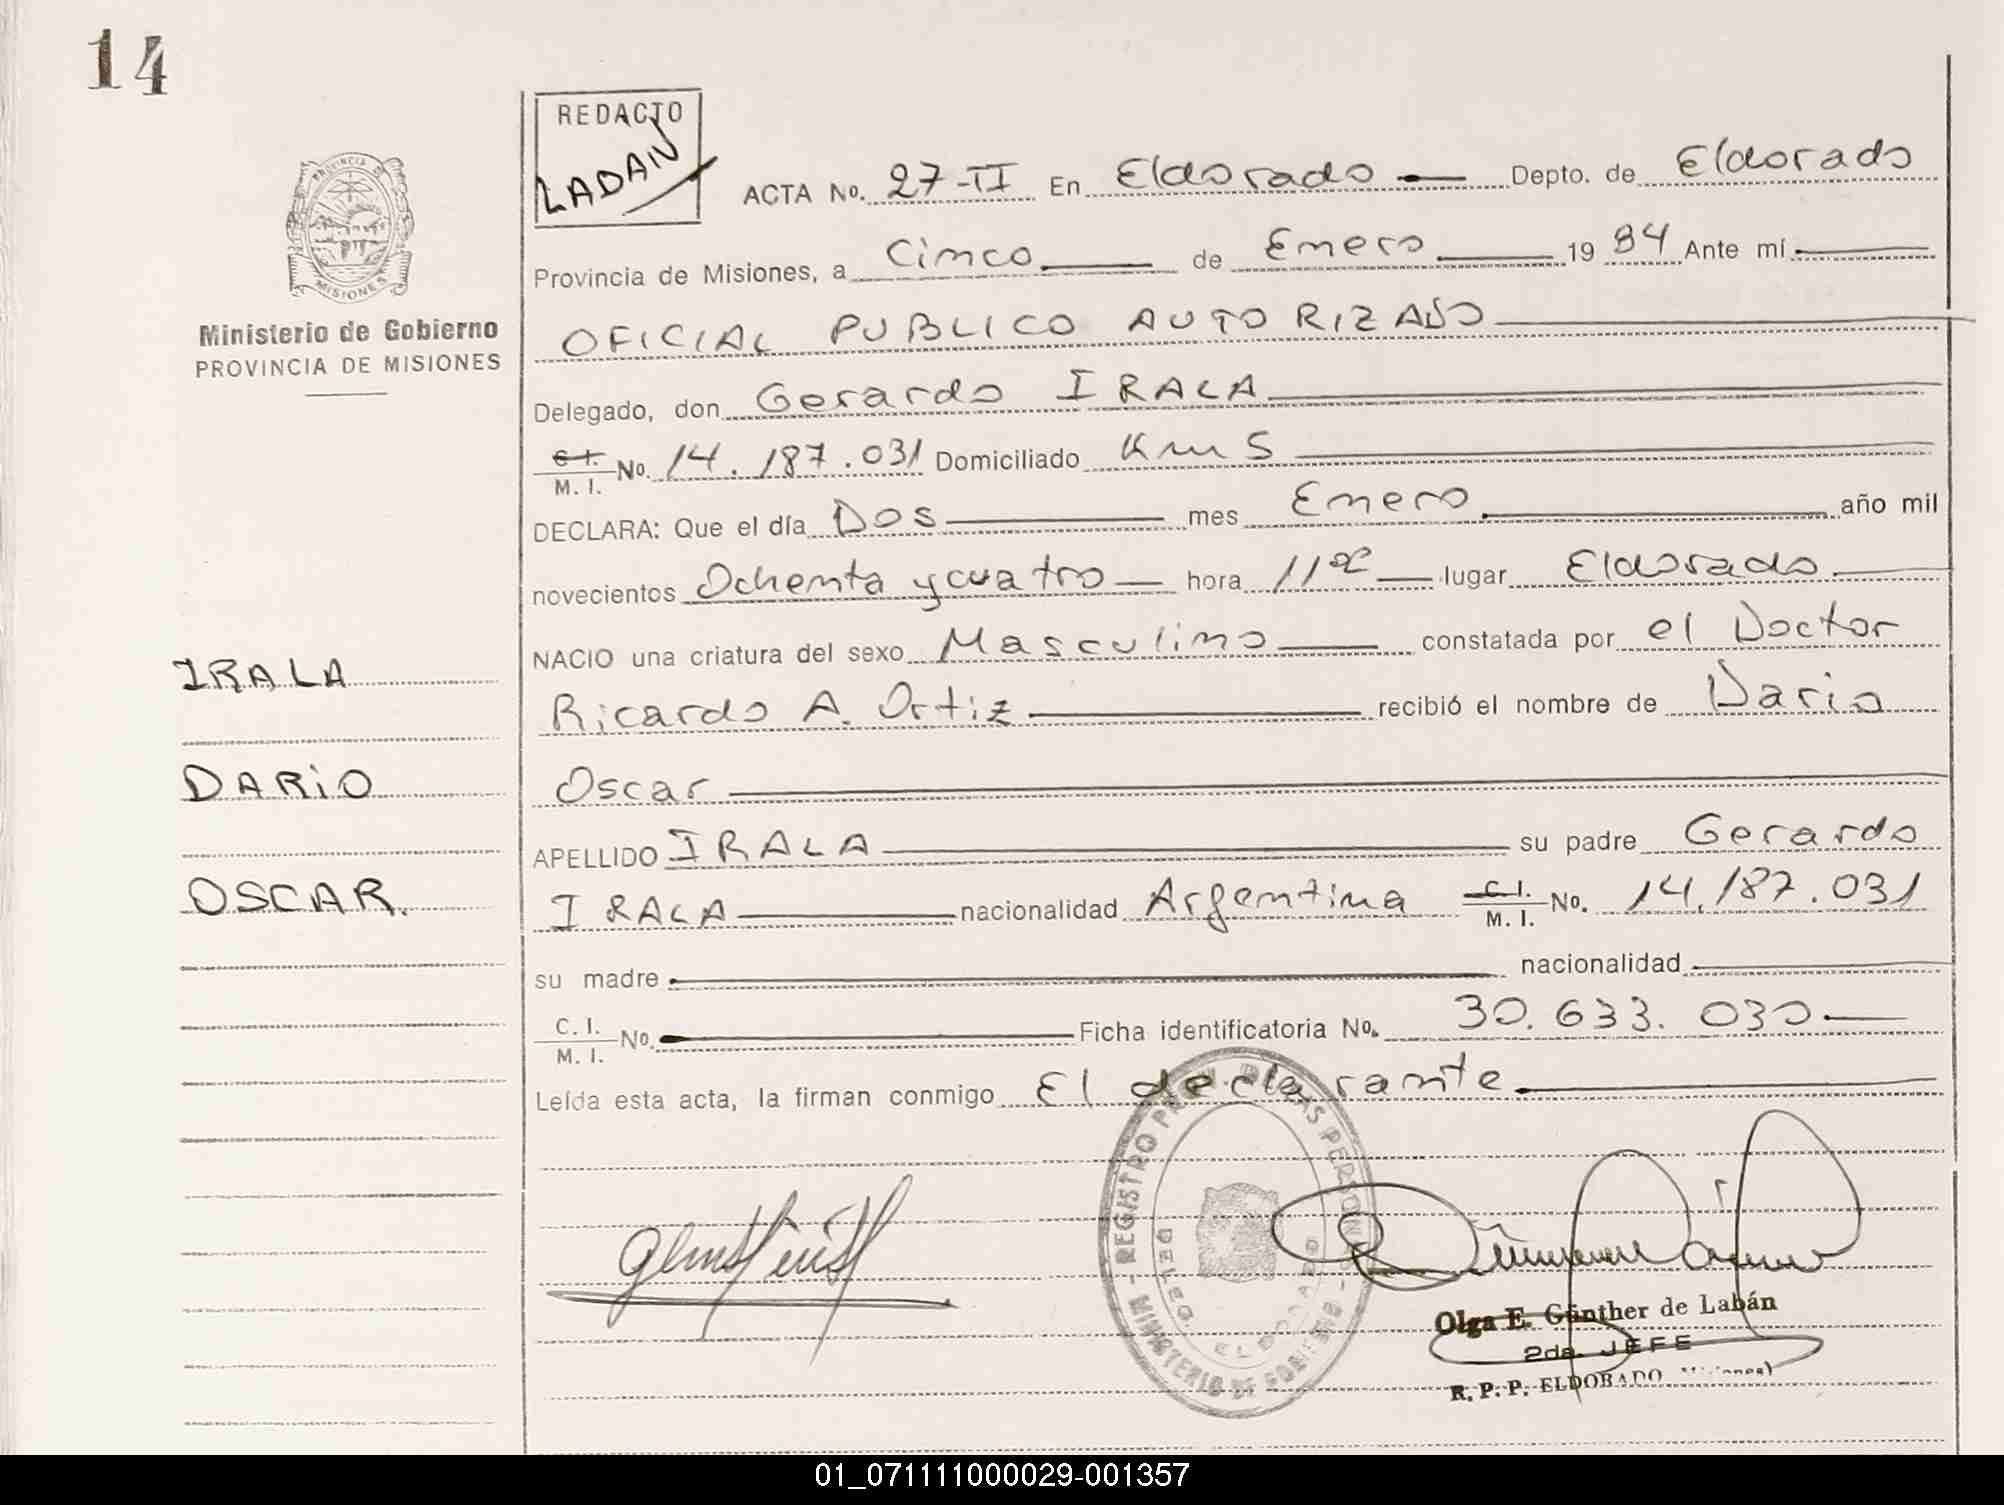 14
REDACTO
LADAN
ACTA No. 27-II En Eldorado Depto. de Eldorado
Provincia de Misiones, a Cinco de Enero 1984 Ante mí
OFICIAL PUBLICO AUTORIZADO
Delegado, don Gerardo IRALA
C.I. M. I. No. 14.187.031 Domiciliado Km 5
DECLARA: Que el día Dos mes Enero año mil
novecientos Ochenta y cuatro hora 11 lugar Eldorado
NACIO una criatura del sexo Masculino constatada por el Doctor
Ricardo A. Ortiz recibió el nombre de Dario
Oscar
APELLIDO IRALA su padre Gerardo
IRALA nacionalidad Argentina C.I. M. I. No. 14.187.031
su madre nacionalidad
C. I. M. I. No. Ficha identificatoria No. 30.633.030
Leída esta acta, la firman conmigo El declarante
PROVINCIA DE
MISIONES
Ministerio de Gobierno
PROVINCIA DE MISIONES
IRALA
DARIO
OSCAR.
MINISTERIO DE GOBIERNO - REGISTRO PROV. DE LAS PERSONAS
DELEG. ELDORADO
Olga E. Günther de Labán
2da. JEFE
R. P. P. ELDORADO (Misiones)
01_071111000029-001357